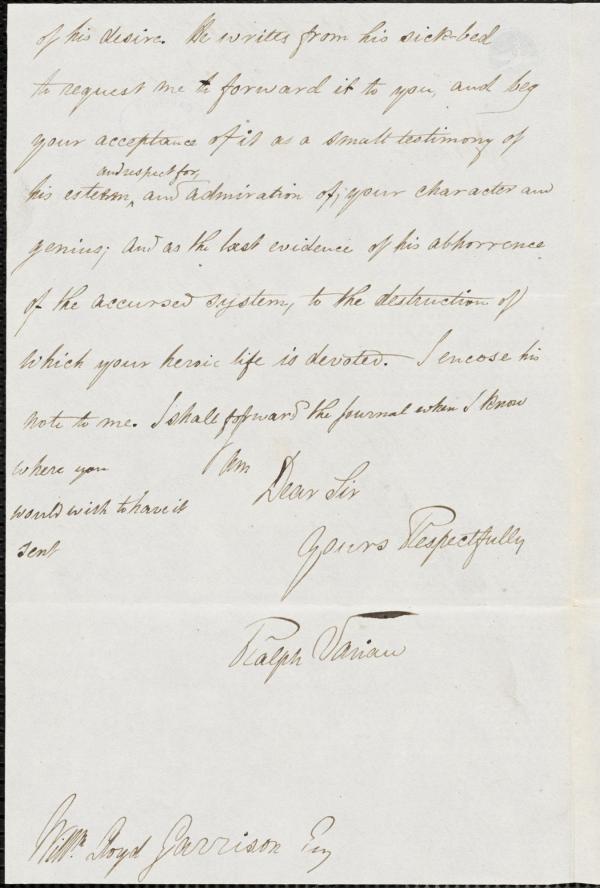 of his desire. He writes from his sick-bed
to request me to forward it to you, and beg
your acceptance of it as a small testimony of
and respect for,
his esteem, and admiration of, your character and
genius; and as the last evidence of his abhorrence
of the accursed system, to the destruction of
which your heroic life is devoted. I encose his
note to me. I shall forward the journal when I know
where you
would wish to have it
sent
I am
Dear Sir
Yours Respectfully
Ralph Varian
Willm. Lloyd Garrison Esq